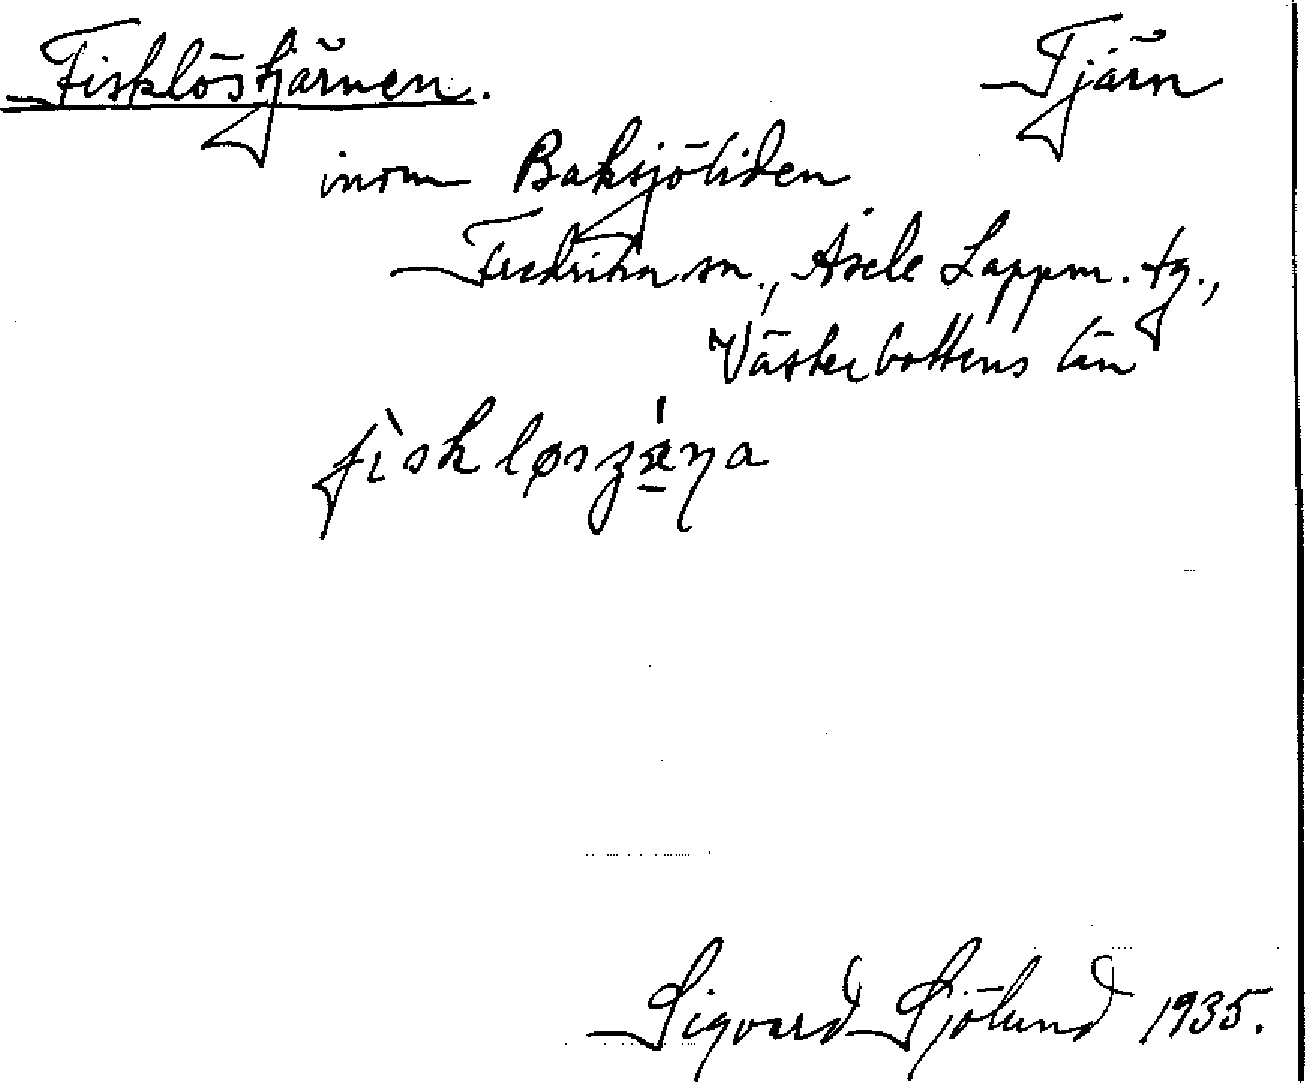 Fisklöstjärnen. Tjärn
inom Baksjöliden
Fredrika sn., Åsele Lappm. tg.,
Västerbottens län
Sigvard Sjölund 1935.